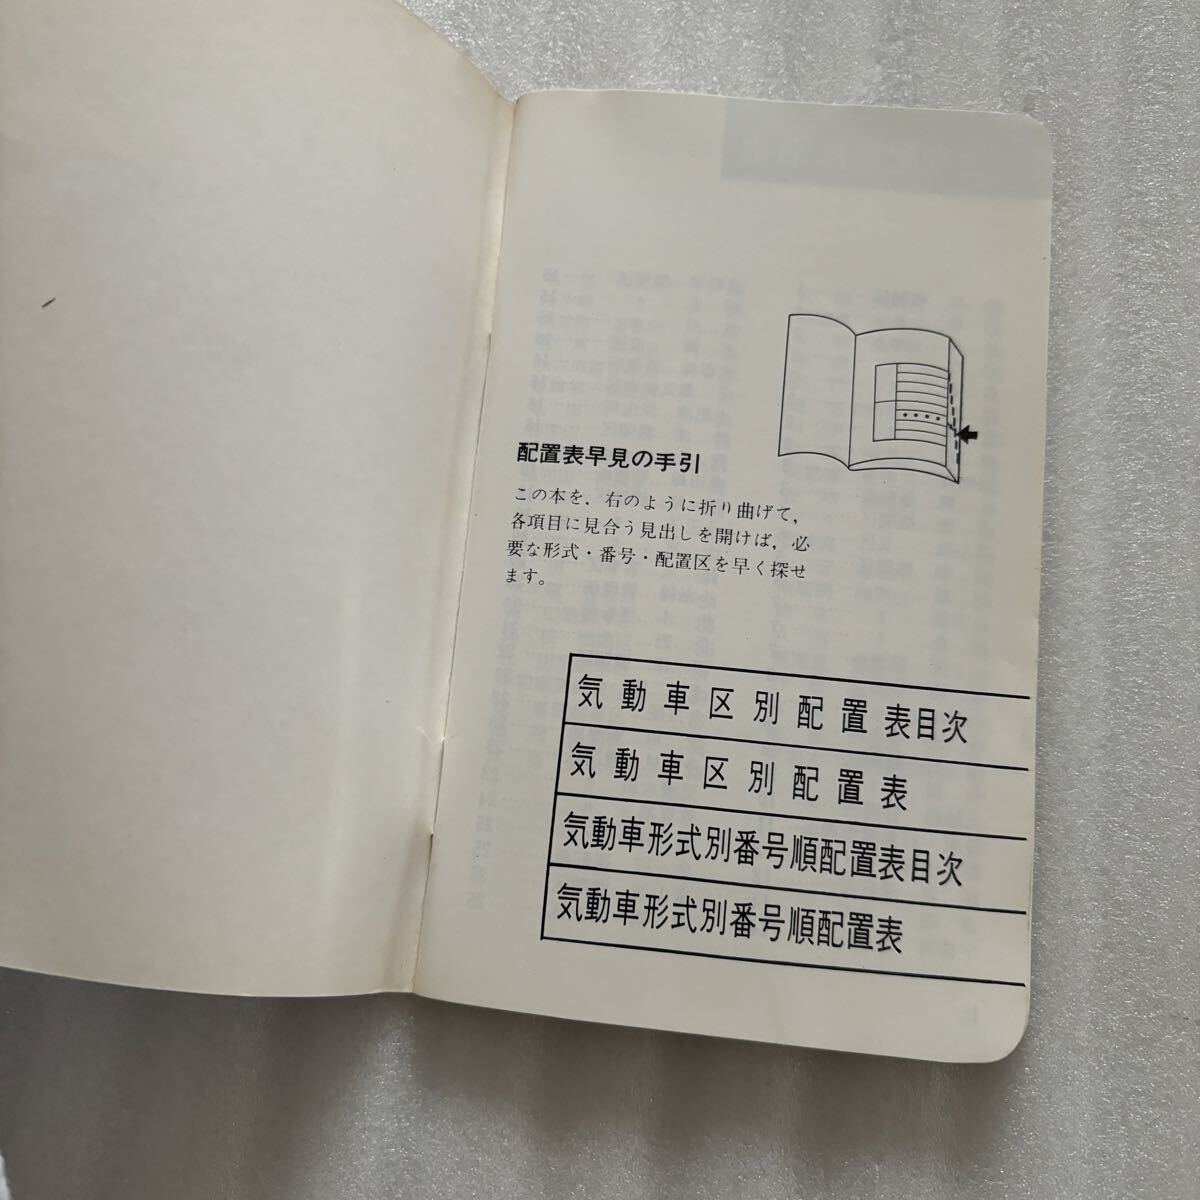 配置表早見の手引
この本を，右のように折り曲げて，
各項目に見合う見出しを開けば，必
要な形式・番号・配置区を早く探せ
ます。
気動車区別配置表目次
気動車区別配置表
気動車形式別番号順配置表目次
気動車形式別番号順配置表